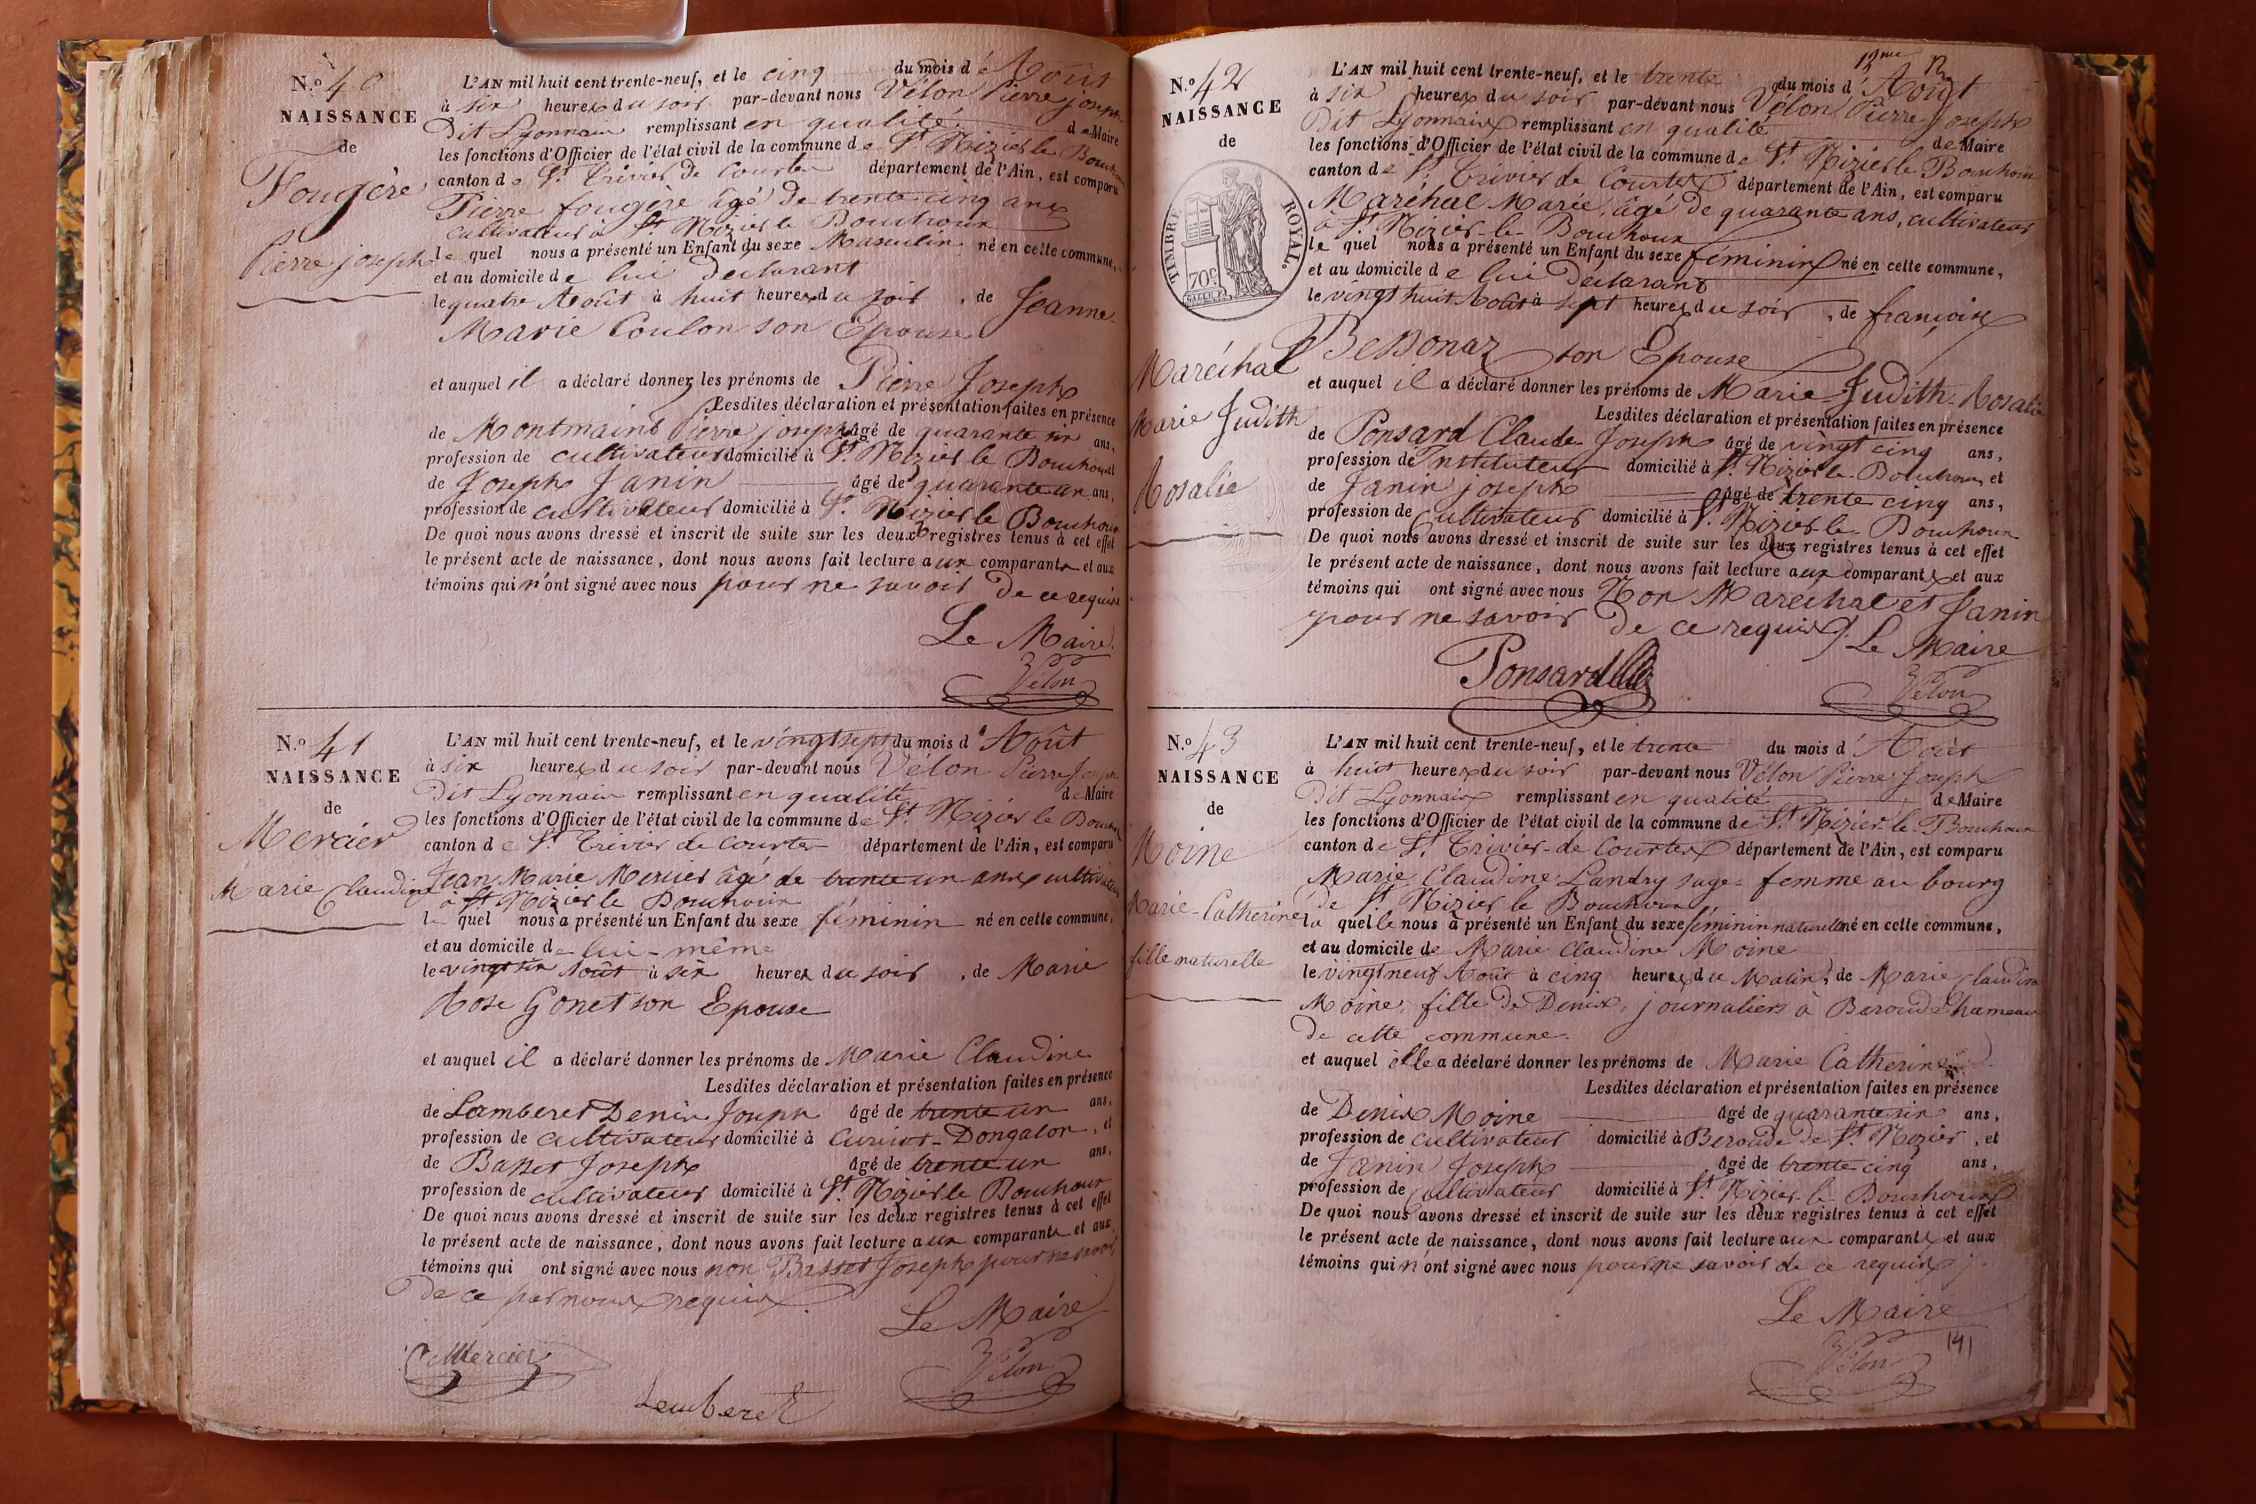 N.º 40
NAISSANCE
de
Fougère
Pierre joseph
L'AN mil huit cent trente-neuf, et le cinq du mois d'Août
à six heures du soir par-devant nous Vélon Pierre joseph
Dit Lyonnais remplissant en qualité de Maire
les fonctions d'Officier de l'état civil de la commune de St. Nizier le Bouchoux
canton de St. Trivier de Courtes département de l'Ain, est comparu
Pierre fougère âgé de trente cinq ans
cultivateur à St. Nizier le Bouchoux
le quel nous a présenté un Enfant du sexe Masculin né en cette commune,
et au domicile de lui déclarant
le quatre Août à huit heures du soir, de Jeanne
Marie Coulon son Epouse
et auquel il a déclaré donner les prénoms de Pierre Joseph
Lesdites déclaration et présentation faites en présence
de Montmaint Pierre joseph âgé de quarante six ans,
profession de cultivateur domicilié à St. Nizier le Bouchoux et
de Joseph Janin âgé de quarante un ans,
profession de cultivateur domicilié à St. Nizier le Bouchoux
De quoi nous avons dressé et inscrit de suite sur les deux registres tenus à cet effet
le présent acte de naissance, dont nous avons fait lecture aux comparants et aux
témoins qui n'ont signé avec nous pour ne savoir de ce requis
Le Maire
Vélon
N.º 41
NAISSANCE
de
Mercier
Marie Claudine
L'AN mil huit cent trente-neuf, et le vingt sept du mois d'Août
à six heures du soir par-devant nous Vélon Pierre Joseph
Dit Lyonnais remplissant en qualité de Maire
les fonctions d'Officier de l'état civil de la commune de St. Nizier le Bouchoux
canton de St. Trivier de Courtes département de l'Ain, est comparu
Jean Marie Mercier âgé de trente un ans cultivateur
à St. Nizier le Bouchoux
le quel nous a présenté un Enfant du sexe féminin né en cette commune,
et au domicile de lui-même
le vingt six Août à six heures du soir, de Marie
Rose Gonet son Epouse
et auquel il a déclaré donner les prénoms de Marie Claudine
Lesdites déclaration et présentation faites en présence
de Lamberet Denis Joseph âgé de trente un ans,
profession de cultivateur domicilié à Curciat-Dongalon, et
de Basset Joseph âgé de trente un ans,
profession de cultivateur domicilié à St. Nizier le Bouchoux
De quoi nous avons dressé et inscrit de suite sur les deux registres tenus à cet effet
le présent acte de naissance, dont nous avons fait lecture aux comparants et aux
témoins qui ont signé avec nous non Basset Joseph pour ne savoir
de ce par nous requis
Le Maire
Mercier
Lamberet
Vélon
12me
N.º 42
NAISSANCE
de
TIMBRE ROYAL.
70c.
Maréchal
Marie Judith
Rosalie
L'AN mil huit cent trente-neuf, et le trente du mois d'Août
à six heures du soir par-devant nous Vélon Pierre Joseph
Dit Lyonnais remplissant en qualité de Maire
les fonctions d'Officier de l'état civil de la commune de St. Nizier le Bouchoux
canton de St. Trivier de Courtes département de l'Ain, est comparu
Maréchal Marie, âgé de quarante ans, cultivateur
à St. Nizier-le-Bouchoux
le quel nous a présenté un Enfant du sexe féminin né en cette commune,
et au domicile de lui Déclarant
le vingt huit Août à sept heures du soir, de françoise
Bessonaz son Epouse
et auquel il a déclaré donner les prénoms de Marie-Judith-Rosalie
Lesdites déclaration et présentation faites en présence
de Ponsard Claude Joseph âgé de vingt cinq ans,
profession de Instituteur domicilié à St. Nizier-le-Bouchoux, et
de Janin joseph âgé de trente cinq ans,
profession de Cultivateur domicilié à St. Nizier le Bouchoux
De quoi nous avons dressé et inscrit de suite sur les deux registres tenus à cet effet
le présent acte de naissance, dont nous avons fait lecture aux comparants et aux
témoins qui ont signé avec nous Non Maréchal et Janin
pour ne savoir de ce requis. Le Maire
Ponsard
Vélon
N.º 43
NAISSANCE
de
Moine
Marie-Catherine
fille naturelle
L'AN mil huit cent trente-neuf, et le trente du mois d'Août
à huit heures du soir par-devant nous Vélon Pierre Joseph
Dit Lyonnais remplissant en qualité de Maire
les fonctions d'Officier de l'état civil de la commune de St. Nizier-le-Bouchoux
canton de St. Trivier-de-Courtes département de l'Ain, est comparu
Marie Claudine Landry sage-femme au bourg
de St. Nizier le Bouchoux
la quelle nous a présenté un Enfant du sexe féminin naturel né en cette commune,
et au domicile de Marie Claudine Moine
le vingt neuf Août à cinq heures du Matin, de Marie Claudine
Moine, fille de Denis, journaliers à Beroude hameau
de cette commune
et auquel elle a déclaré donner les prénoms de Marie Catherine
Lesdites déclaration et présentation faites en présence
de Denis Moine âgé de quarante six ans,
profession de cultivateur domicilié à Beroude de St. Nizier, et
de Janin Joseph âgé de trente cinq ans,
profession de Cultivateur domicilié à St. Nizier-le-Bouchoux
De quoi nous avons dressé et inscrit de suite sur les deux registres tenus à cet effet
le présent acte de naissance, dont nous avons fait lecture aux comparants et aux
témoins qui n'ont signé avec nous pour ne savoir de ce requis
Le Maire
Vélon
141